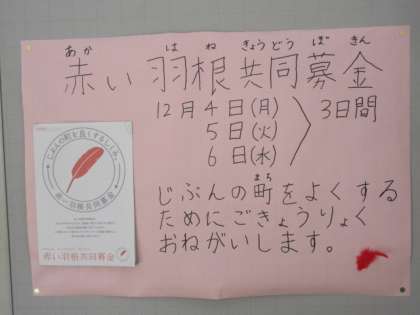 あか はね きょうどう ぼきん
赤い羽根共同募金
12月4日(月)
5日(火)
6日(水)
3日間
まち
じぶんの町をよくする
ためにごきょうりょく
おねがいします。
じぶんの町を良くするしくみ。
赤い羽根共同募金
赤い羽根共同募金